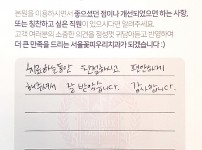 본원을 이용하시면서 좋으셨던 점이나 개선되었으면 하는 사항,
또는 칭찬하고 싶은 직원이 있으시다면 알려주세요.
고객 여러분의 소중한 의견을 정성껏 귀담아듣고 반영하여
더 큰 만족을 드리는 서울꽃피우리치과가 되겠습니다 :)
치료하는동안 친절하시고 편안하게
해주셔서 잘 받았습니다. 감사합니다.